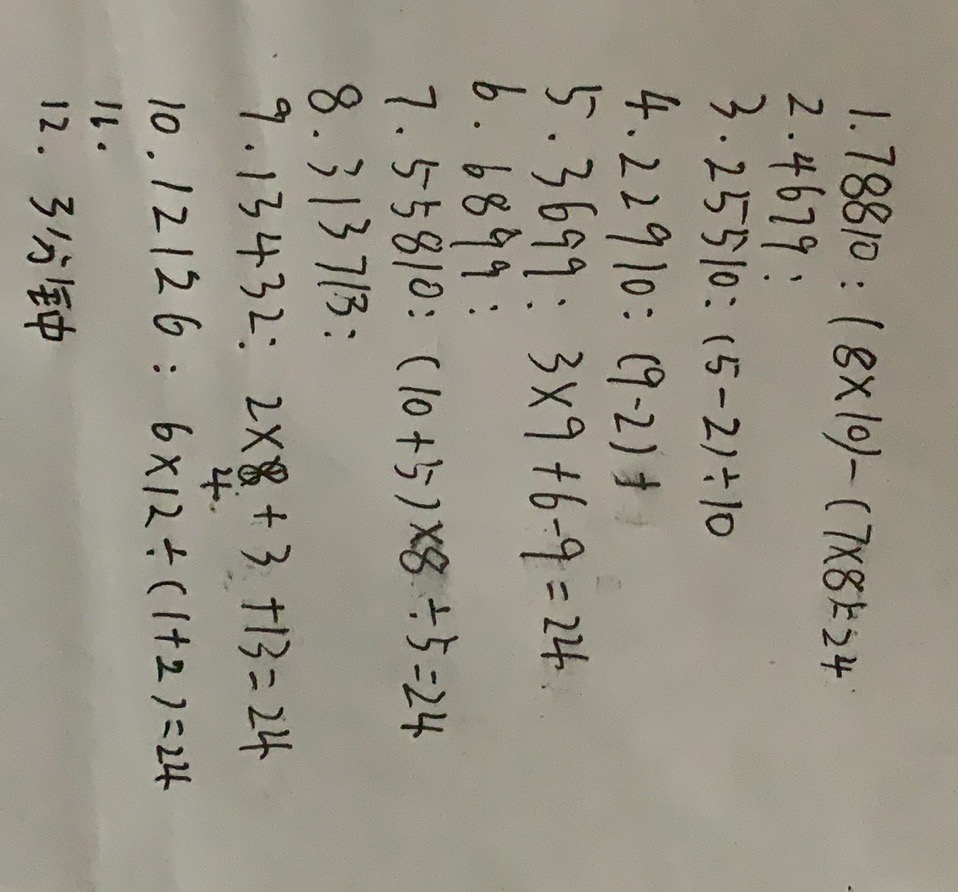 1.78810: (8×10)-(7×8)=24
2.4679:
3.25510: (5-2)÷10
4.22910: (9-2)+
5.3699: 3×9+6-9=24
6.6899:
7.55810: (10+5)×8÷5=24
8.313713:
9.13432: 2×4+3+13=24
10.12126: 6×12÷(1+2)=24
11.
12. 3分钟